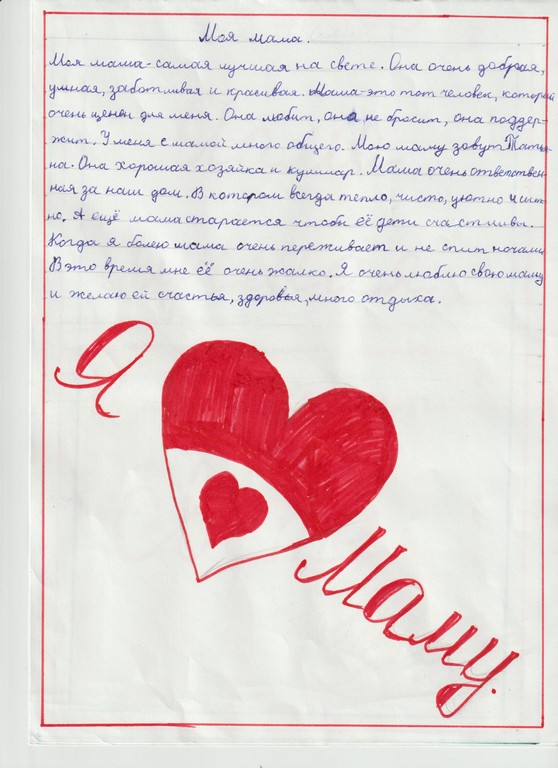 Моя мама.
Моя мама - самая лучшая на свете. Она очень добрая,
умная, заботливая и красивая. Мама - это тот человек, который
очень ценен для меня. Она любит, она не бросит, она поддер-
жит. У меня с мамой много общего. Мою маму зовут Татья-
на. Она хорошая хозяйка и кулинар. Мама очень ответствен-
ная за наш дом. В котором всегда тепло, чисто, уютно и
но. А ещё мама старается чтоби её дети счастливы.
Когда я болею мама очень переживает и не спит ночами
В это время мне её очень жалко. Я очень люблю свою маму
и желаю ей счастья, здоровья, много отдыха.
Я
Маму.